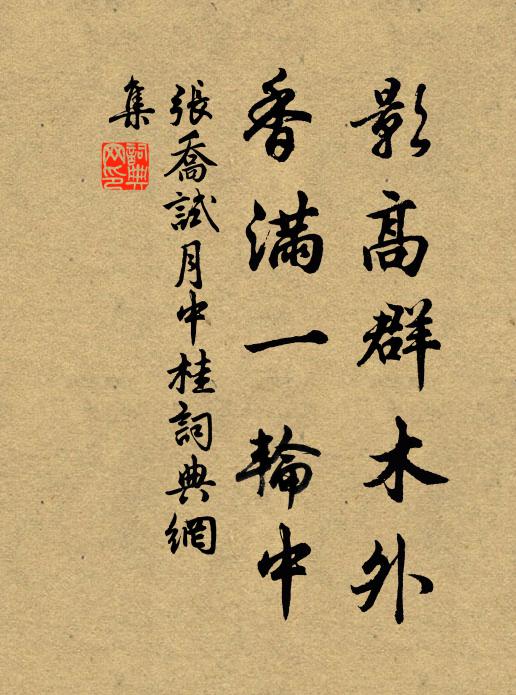 影高群木外
香滿一輪中
張喬試月中桂詞典網
集
詞典網印